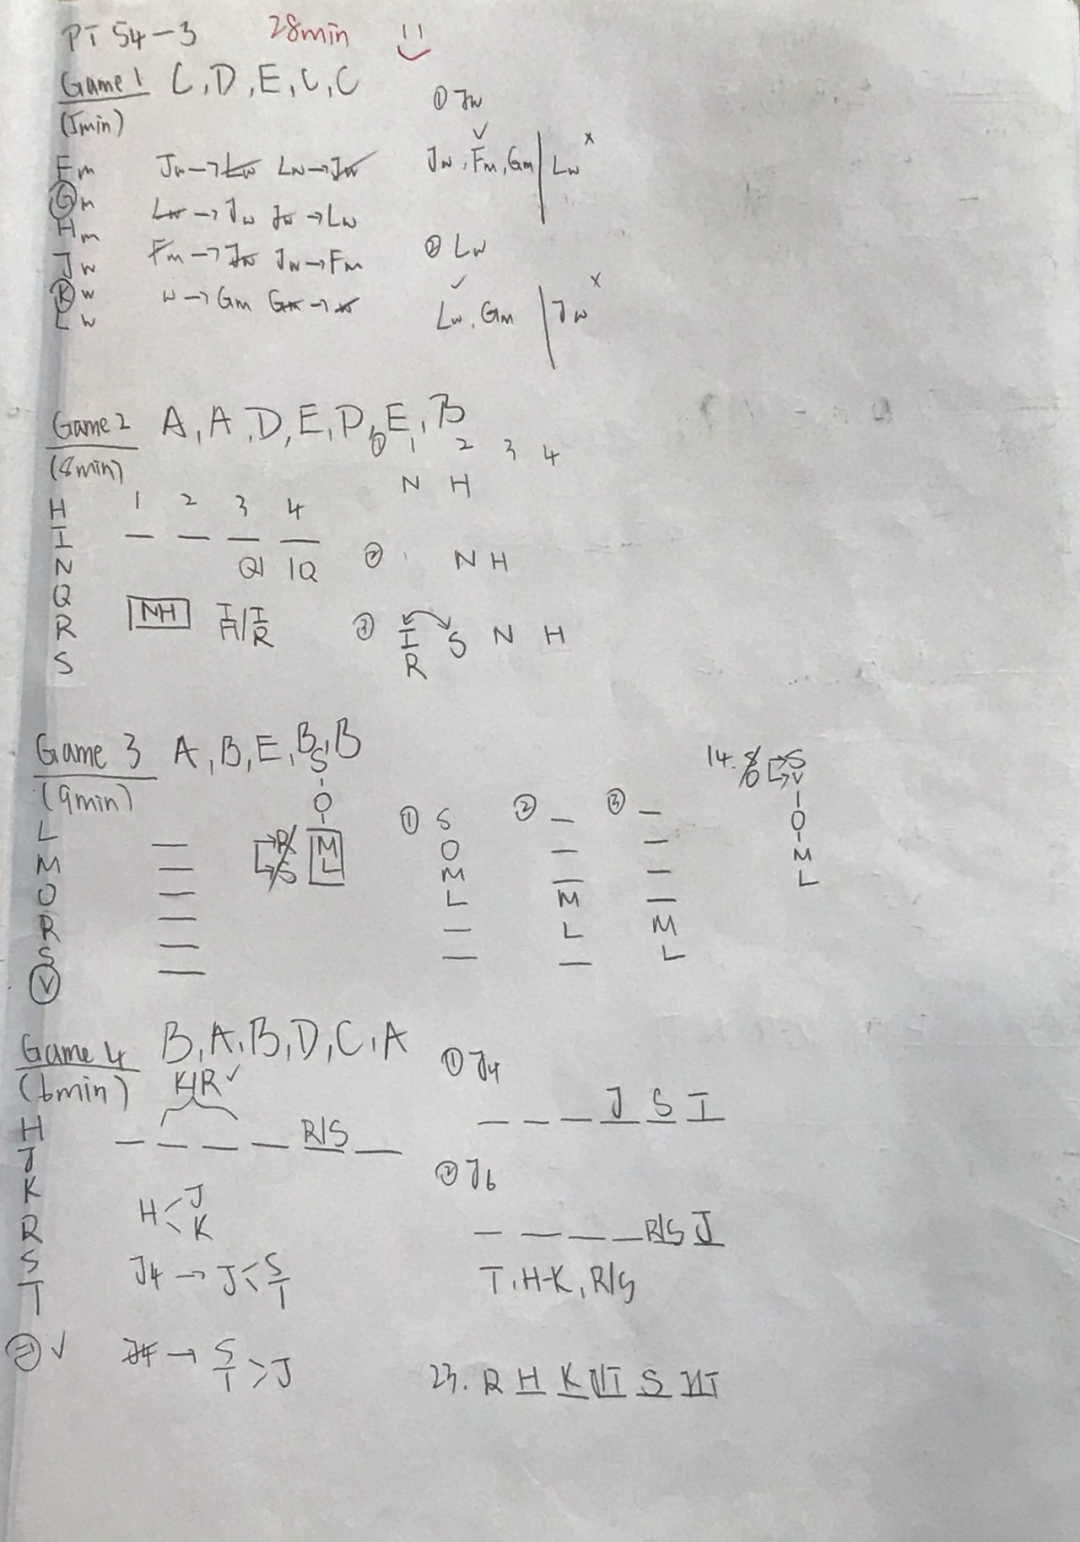 PT 54-3 28min
Game 1 C, D, E, C, C
(5min)
① Jw
Fm Jw→Lw Lw→Jw Jw, Fm, Gm | Lw
Gm Lw→Jw Jw→Lw
Hm
Jw Fm→Jw Jw→Fm ② Lw
Kw w→Gm Gm→w Lw, Gm | Jw
Lw
Game 2 A, A, D, E, D, E, B
(8min)
① 1 2 3 4
N H
H 1 2 3 4
I
N QI IQ ② N H
Q
R NH I/H / I/R ③ I/R S N H
S
Game 3 A, B, E, B, B
(9min)
L
M
O
R
S
V
S
O
R/ M
/S L
① S
O
M
L
② M
L
③ M
L
14. S
V
O
M
L
Game 4 B, A, B, D, C, A
(6min) K/R ✓
① J4
H R/S J S I
J
K ② J6
R H < J K R/S J
S J4 → J < S T T, H-K, R/S
T
J4 → S T > J 23. R H K S